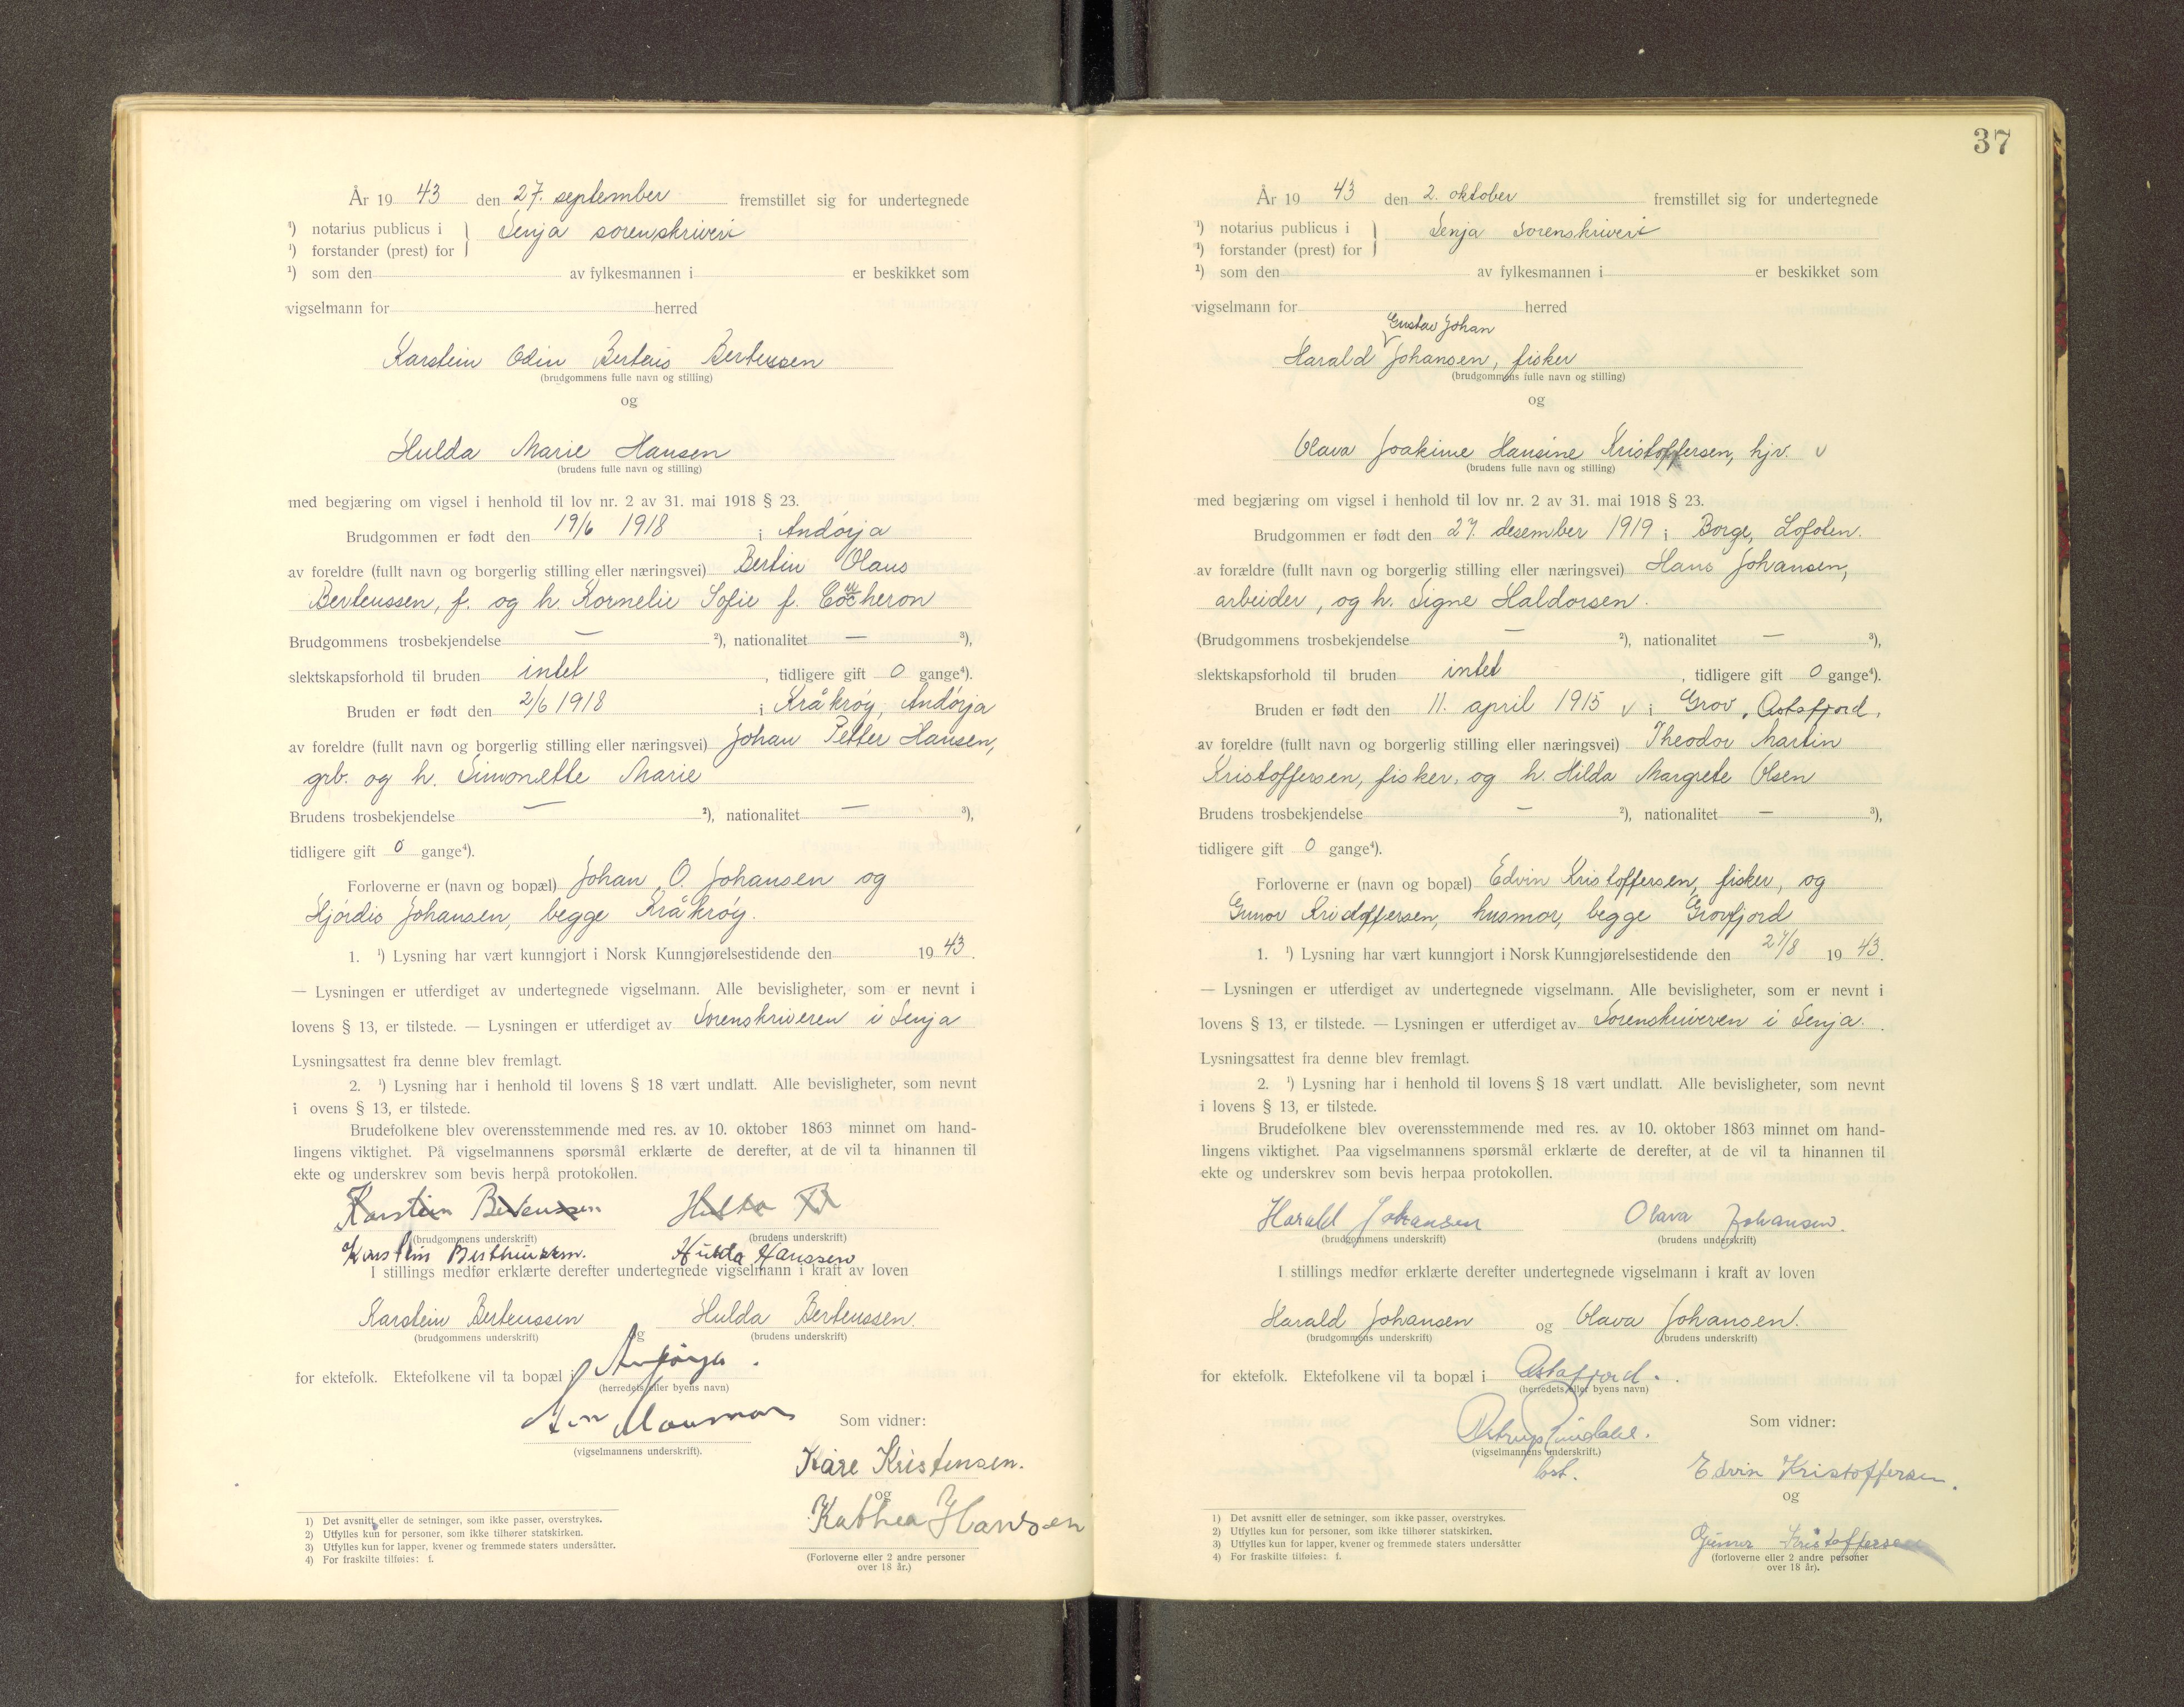 År 19 43 den 27. september fremstillet sig for undertegnede
¹) notarius publicus i } Senja sorenskriveri
¹) forstander (prest) for
¹) som den av fylkesmannen i er beskikket som
vigselmann for herred
Karstein Odin Berteus Berteussen
(brudgommens fulle navn og stilling)
og
Hulda Marie Hansen
(brudens fulle navn og stilling)
med begjæring om vigsel i henhold til lov nr. 2 av 31. mai 1918 § 23.
Brudgommen er født den 19/6 1918 i Andørja
av foreldre (fullt navn og borgerlig stilling eller næringsvei) Bertin Olaus
Berteussen, f. og h. Kornelie Sofie f. heron
Brudgommens trosbekjendelse — ²), nationalitet — ³),
slektskapsforhold til bruden intet , tidligere gift 0 gange⁴).
Bruden er født den 2/6 1918 i Kråkrøy, Andørja
av foreldre (fullt navn og borgerlig stilling eller næringsvei) Johan Petter Hansen,
grb. og h. Simonette Marie
Brudens trosbekjendelse — ²), nationalitet — ³),
tidligere gift 0 gange⁴).
Forloverne er (navn og bopæl) Johan O. Johansen og
Hjördis Johansen, begge Kråkrøy.
1. ¹) Lysning har vært kunngjort i Norsk Kunngjørelsestidende den 19 43.
— Lysningen er utferdiget av undertegnede vigselmann. Alle bevisligheter, som er nevnt i
lovens § 13, er tilstede. — Lysningen er utferdiget av Sorenskriveren i Senja
Lysningsattest fra denne blev fremlagt.
2. ¹) Lysning har i henhold til lovens § 18 vært undlatt. Alle bevisligheter, som nevnt
i ovens § 13, er tilstede.
Brudefolkene blev overensstemmende med res. av 10. oktober 1863 minnet om hand-
lingens viktighet. På vigselmannens spørsmål erklærte de derefter, at de vil ta hinannen til
ekte og underskrev som bevis herpå protokollen.
Karstein Berteussen Hulda
(brudgommens underskrift) (brudens underskrift)
Karstein Hulda Hanssen
I stillings medfør erklærte derefter undertegnede vigselmann i kraft av loven
Karstein Berteussen og Hulda Berteussen.
(brudgommens underskrift) (brudens underskrift)
for ektefolk. Ektefolkene vil ta bopæl i Andørja.
(herredets eller byens navn)
(vigselmannens underskrift).
Som vidner:
Kåre Kristensen.
og
Kathea Hansen
(Forloverne eller 2 andre personer
over 18 år.)
1) Det avsnitt eller de setninger, som ikke passer, overstrykes.
2) Utfylles kun for personer, som ikke tilhører statskirken.
3) Utfylles kun for lapper, kvener og fremmede staters undersåtter.
4) For fraskilte tilføies: f.
37
År 19 43 den 2. oktober fremstillet sig for undertegnede
¹) notarius publicus i } Senja Sorenskriveri
¹) forstander (prest) for
¹) som den av fylkesmannen i er beskikket som
vigselmann for herred
Gustav Johan
Harald Johansen, fisker
(brudgommens fulle navn og stilling)
og
Olava Joakime Hansine Kristoffersen, hjv. v
(brudens fulle navn og stilling)
med begjæring om vigsel i henhold til lov nr. 2 av 31. mai 1918 § 23.
Brudgommen er født den 27. desember 1919 i Borge, Lofoten.
av forældre (fullt navn og borgerlig stilling eller næringsvei) Hans Johansen,
arbeider, og h. Signe Haldorsen.
(Brudgommens trosbekjendelse — ²), nationalitet — ³),
slektskapsforhold til bruden intet , tidligere gift 0 gange⁴).
Bruden er født den 11. april 1915 v i Grov, Astafjord,
av foreldre (fullt navn og borgerlig stilling eller næringsvei) Theodor Martin
Kristoffersen, fisker, og h. Hilda Margrete Olsen
Brudens trosbekjendelse — ²), nationalitet — ³),
tidligere gift 0 gange⁴).
Forloverne er (navn og bopæl) Edvin Kristoffersen, fisker, og
Gunor Kristoffersen, husmor, begge Grovfjord
1. ¹) Lysning har vært kunngjort i Norsk Kunngjørelsestidende den 27/8 19 43.
— Lysningen er utferdiget av undertegnede vigselmann. Alle bevisligheter, som er nevnt i
lovens § 13, er tilstede. — Lysningen er utferdiget av Sorenskriveren i Senja.
Lysningsattest fra denne blev fremlagt.
2. ¹) Lysning har i henhold til lovens § 18 vært undlatt. Alle bevisligheter, som nevnt
i lovens § 13, er tilstede.
Brudefolkene blev overensstemmende med res. av 10. oktober 1863 minnet om hand-
lingens viktighet. Paa vigselmannens spørsmål erklærte de derefter, at de vil ta hinannen til
ekte og underskrev som bevis herpaa protokollen.
Harald Johansen Olava Johansen.
(brudgommens underskrift) (brudens underskrift)
I stillings medfør erklærte derefter undertegnede vigselmann i kraft av loven
Harald Johansen og Olava Johansen.
(brudgommens underskrift) (brudens underskrift)
for ektefolk. Ektefolkene vil ta bopæl i Astafjord.
(herredets eller byens navn)
(vigselmannens underskrift.)
Som vidner:
Edvin Kristoffersen.
og
Gunor Kristoffersen
(forloverne eller 2 andre personer
over 18 år).
1) Det avsnitt eller de setninger, som ikke passer, overstrykes.
2) Utfylles kun for personer, som ikke tilhører statskirken.
3) Utfylles kun for lapper, kvener og fremmede staters undersåtter
4) For fraskilte tilføies: f.